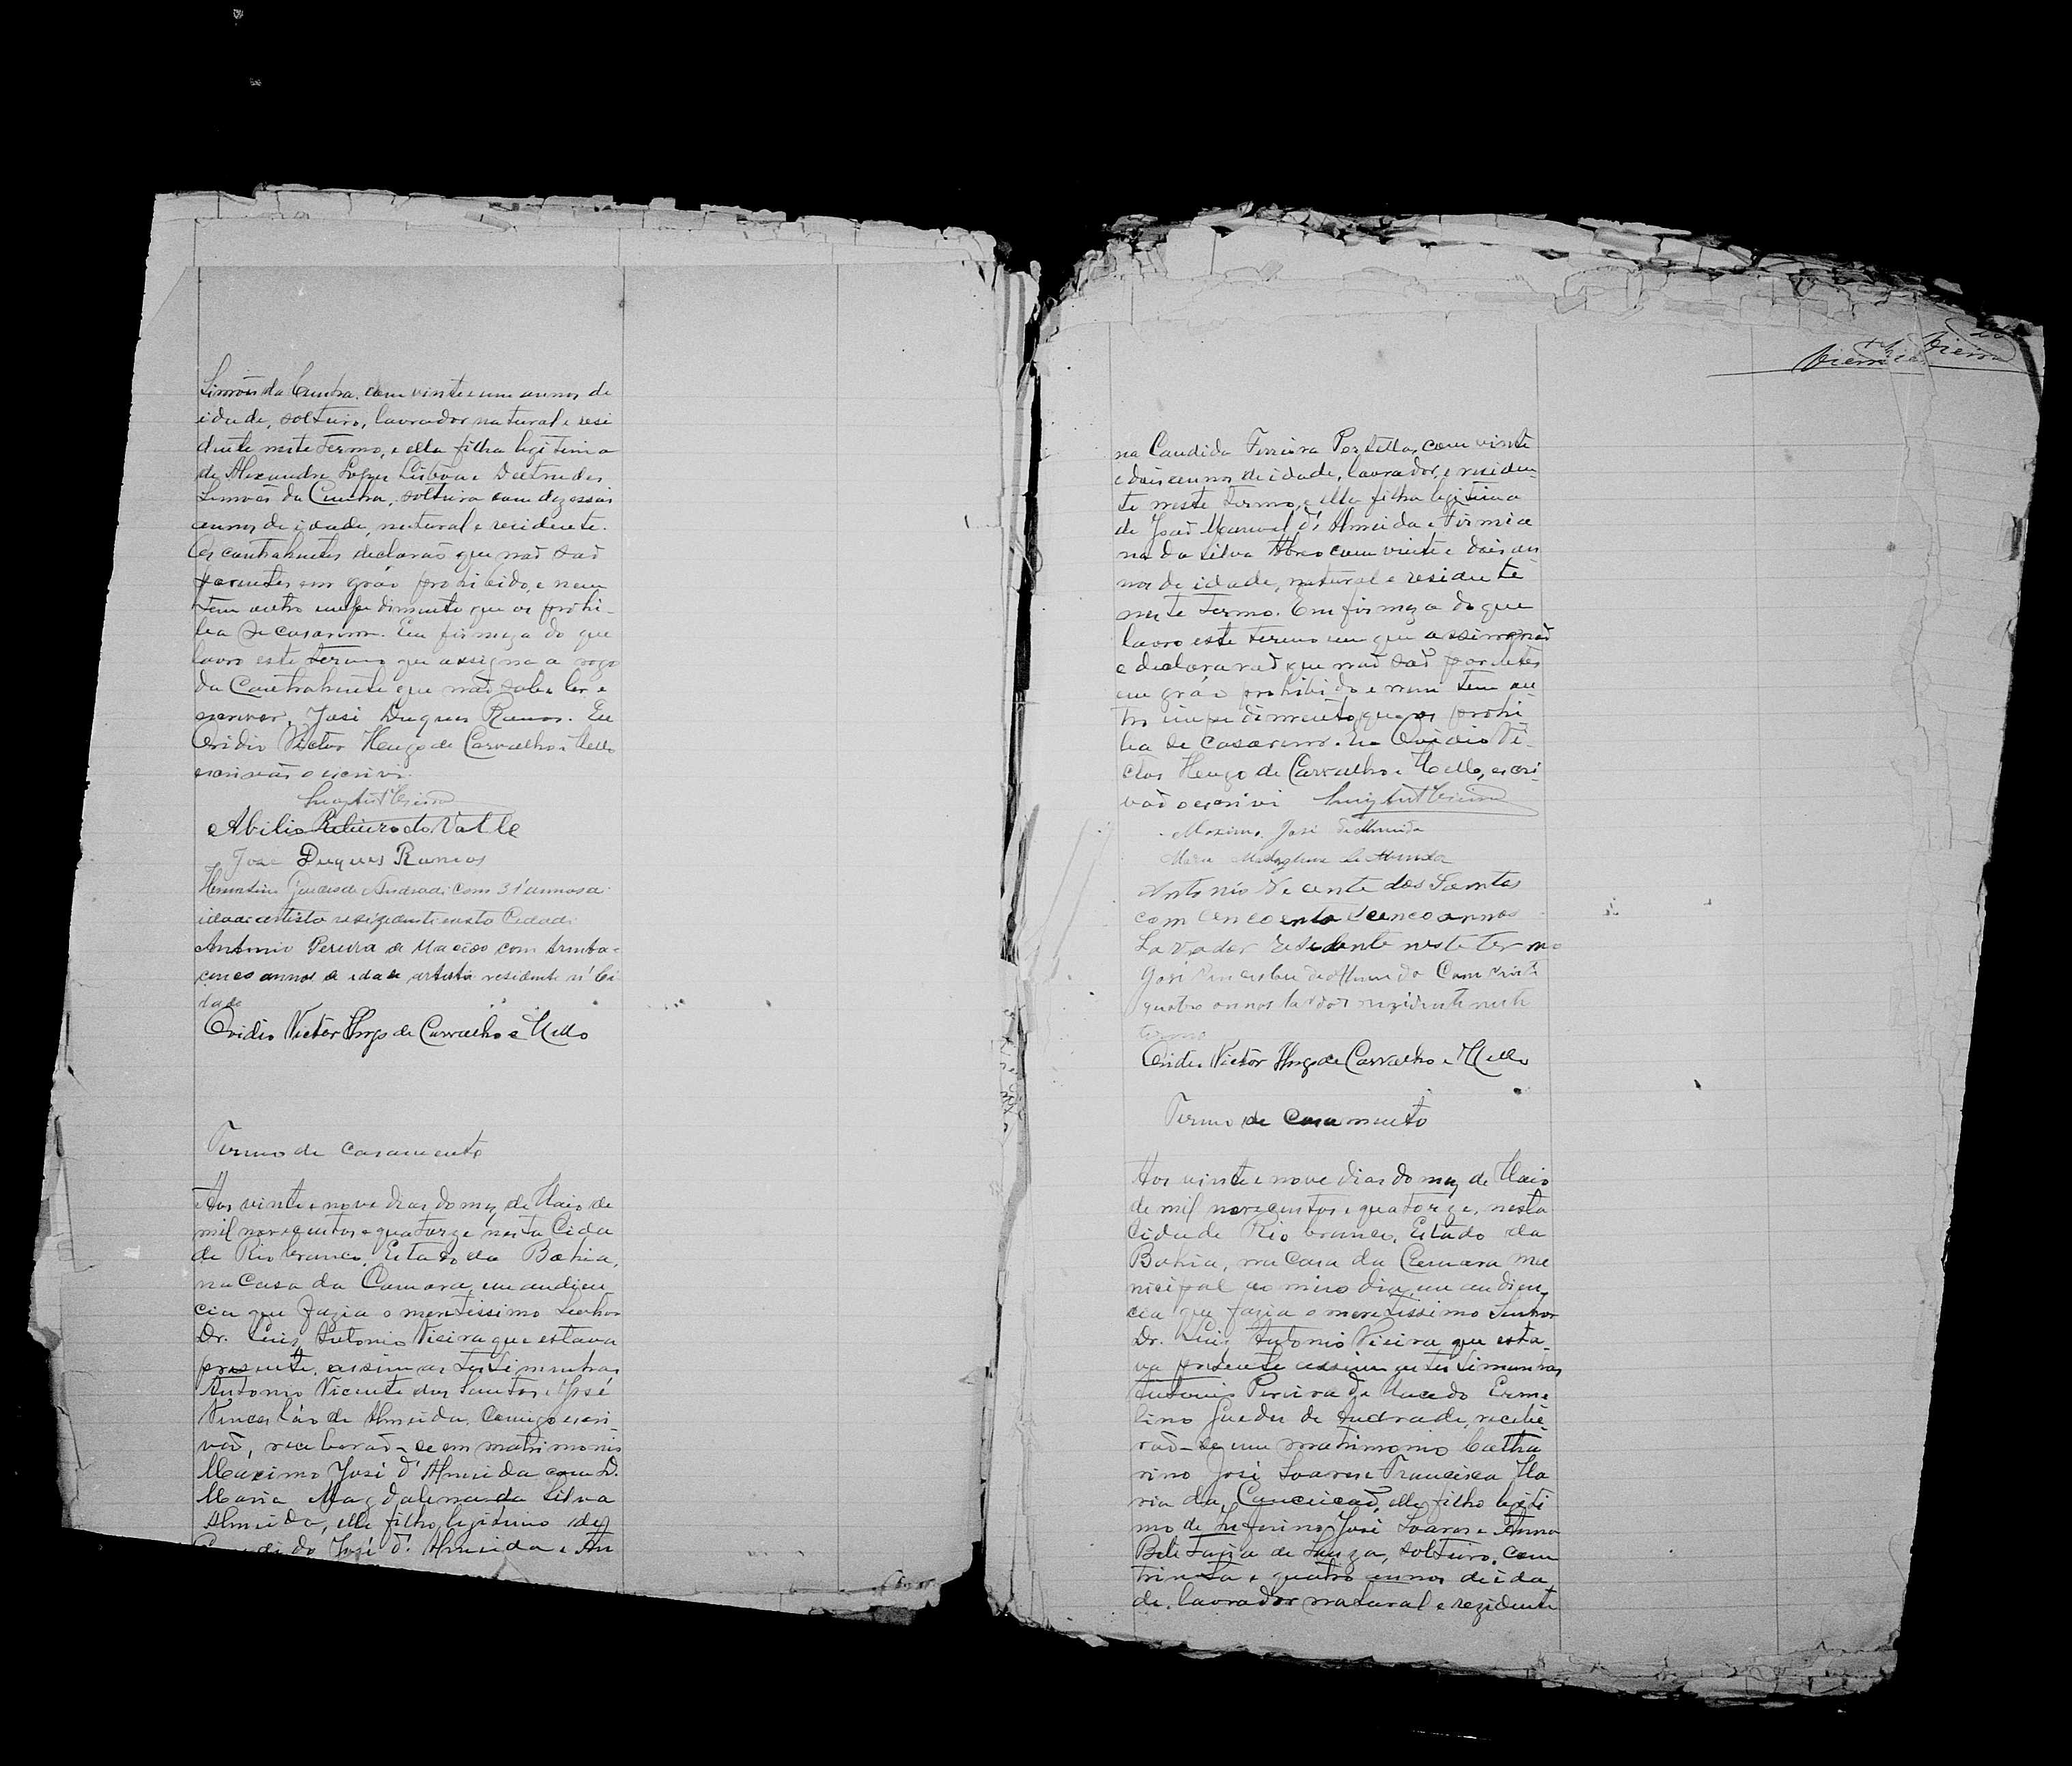 Simões da Cunha, com vinte e um annos de
idade, solteiro, lavrador natural e resi
dente neste termo, e ella filha legitima
de Alexandre Lopes Lisboa e
Simões da Cunha, solteira com dezesseis
annos de idade, natural e residente.
Os contrahentes declaraõ que naõ saõ
parentes em gráo prohibido, e nem
tem outro impedimento que os prohi-
ba de casarem. Em firmeza do que
lavro este termo que assigna a rogo
da Contrahente que naõ sabe ler e
escrever, José Duques Ramos. Eu
Ovidio Victor Hugo de Carvalho e Mello
escrivão o escrivi.
Abilio Ribeiro do Valle
José Duques Ramos
Guedes de Andrade com 31 annos de
idade artista rezidente nesta Cidade
Antonio Pereira de Macedo com trinta e
cinco annos de idade artista residente n' Ci
dade
Ovidio Victor Hugo de Carvalho e Mello
Termo de casamento
Aos vinte e nove dias do mez de Maio de
mil novecentos e quatorze nesta Cida
de Rio branco, Estado da Bahia,
na Casa da Camara, em audien
cia que fazia o meretissimo Senhor
Dr. Luiz Antonio Vieira que estava
presente, assim as testimunhas
Antonio Vicente dos Santos e José
Venceslão de Almeida, Comigo escri
vaõ, receberaõ-se em matrimonio
Maximo José d'Almeida com D.
Maria Magdalena da Silva
Almeida, elle filho legitimo de
Candido José d'Almeida e An
Vieira
na Candida Ferreira Portella, com vinte
e dois annos de idade, lavrador, e residen
te neste termo, e ella filha legitima
de Joaõ Manoel d'Almeida e Firmia
na da Silva Abreo com vinte e dois an
nos de idade, natural e residente
neste termo. Em firmeza do que
lavro este termo em que assignaõ
e declararaõ que naõ saõ parentes
em gráo prohibido e nem tem ou
tro impedimento que os prohi
ba de casarem. Eu Ovidio Vi-
ctor Hugo de Carvalho e Mello, escri-
vaõ o escrivi
Maximo José de Almeida
Maria Magdalena de Almeida
Antonio Vicente dos Santos
com cencoenta e cenco annos
Lavrador Residente neste termo
José Venceslau de Almeida Com vinte
quatro annos lavdor rezidente neste
termo
Ovidio Victor Hugo de Carvalho e Mello
Termo de Casamento
Aos vinte e nove dias do mez de Maio
de mil novecentos e quatorze, nesta
Cidade Rio branco, Estado da
Bahia, na casa da Camara mu
nicipal ao meio dia, em audien
cia que fazia o meretissimo Senhor
Dr. Luiz Antonio Vieira que esta-
va presente assim as testimunhas
Antonio Pereira de Macedo Erme
lino Guedes de Andrade, recebe-
raõ-se em matrimonio Catha
rino José Soares e Francisca Ma
ria da Conceicaõ, elle filho legiti
mo de Zeferino José Soares e Anna
Belizaria de Souza, solteiro, com
trinta e quatro annos de ida
de, lavrador natural e rezidente